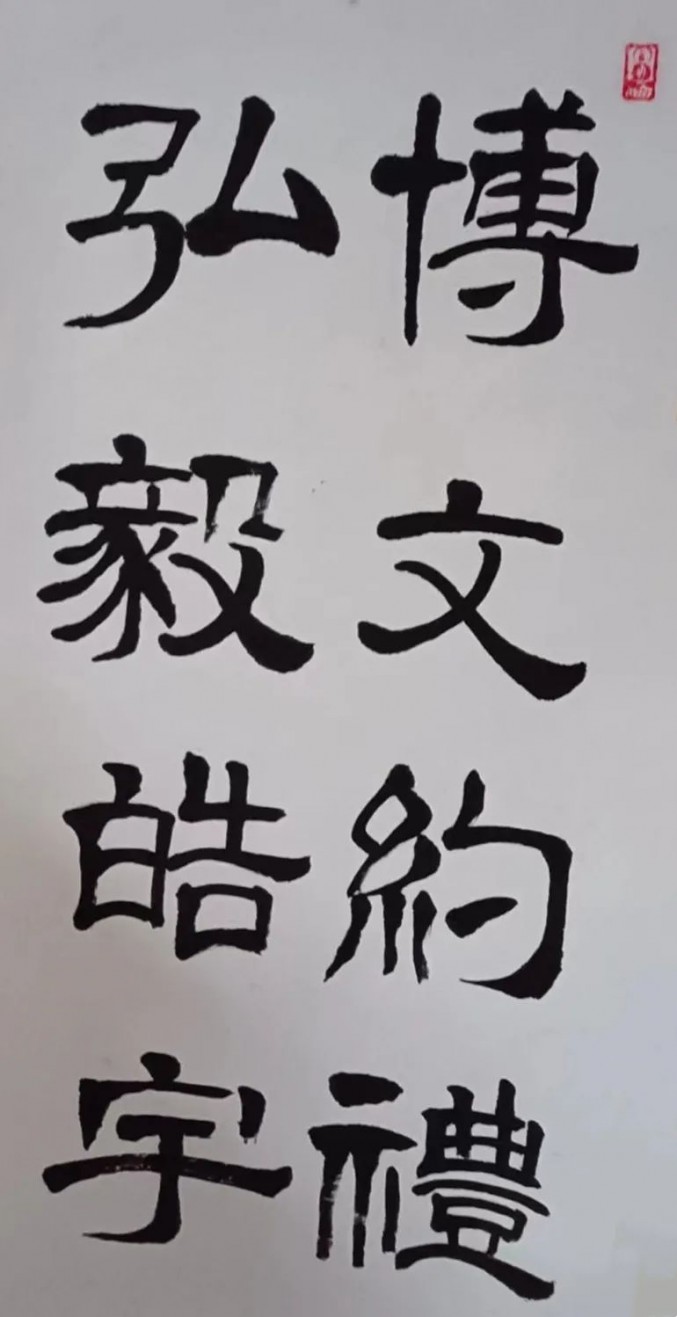 博文約禮
弘毅皓宇